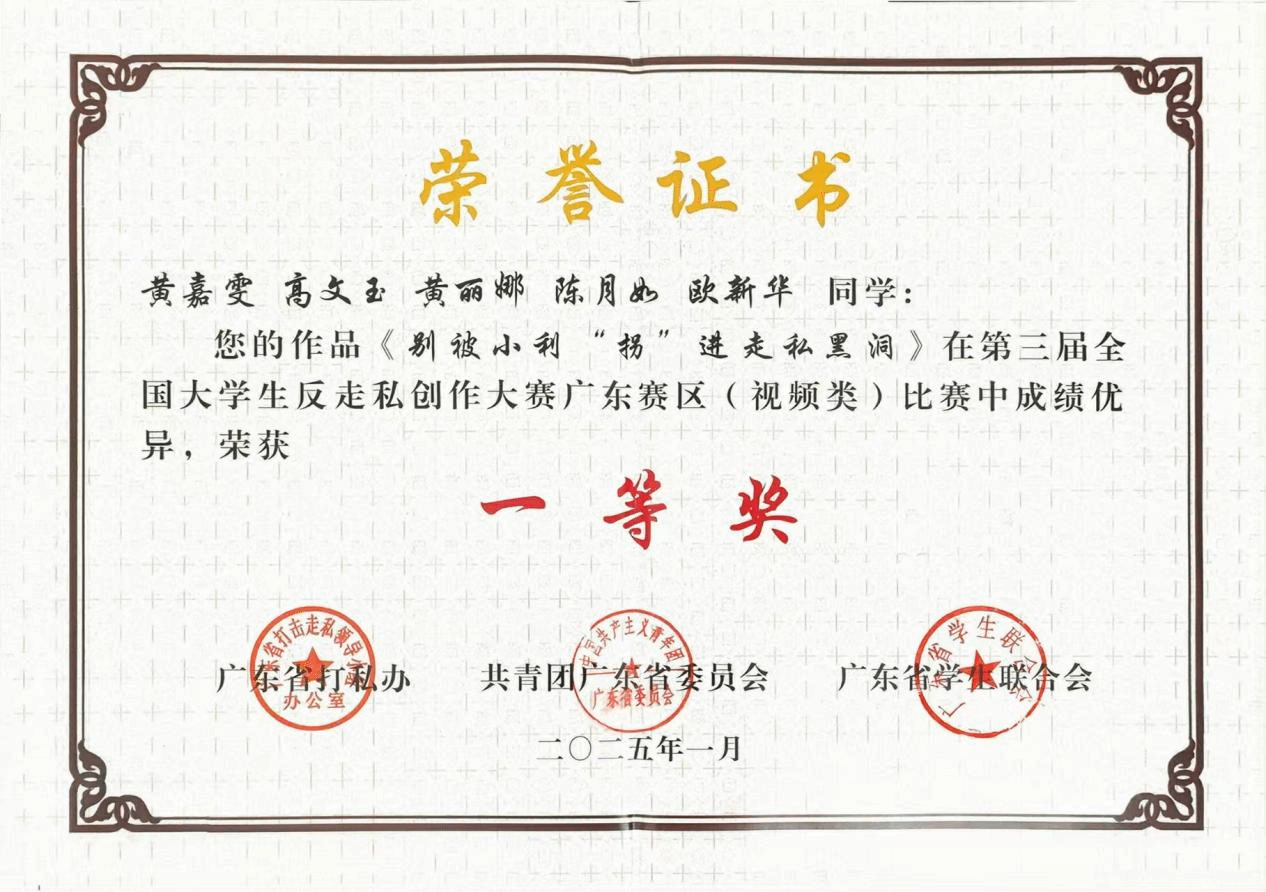 荣誉证书
黄嘉雯 高文玉 黄丽娜 陈月如 欧新华 同学：
您的作品《别被小利“拐”进走私黑洞》在第三届全
国大学生反走私创作大赛广东赛区（视频类）比赛中成绩优
异，荣获
一等奖
广东省打私办 共青团广东省委员会 广东省学生联合会
办公室
中国共产主义青年团
广东省委员会
广东省学生联合会
二〇二五年一月